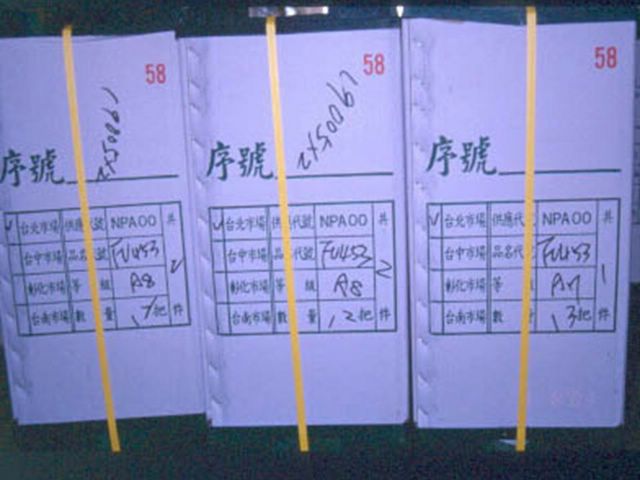 58
序號
台北市場 供應代號 NPA00 共
台中市場 品名代號 FU453
彰化市場 等 組 A8 2
台南市場 數 量 件
58
序號
台北市場 供應代號 NPA00 共
台中市場 品名代號 FU453
彰化市場 等 組 A8 2
台南市場 數 量 12把 件
58
序號
台北市場 供應代 NPA00 共
台中市場 品名代 FU453
彰化市場 等 組 A7 1
台南市場 數 量 13把 件